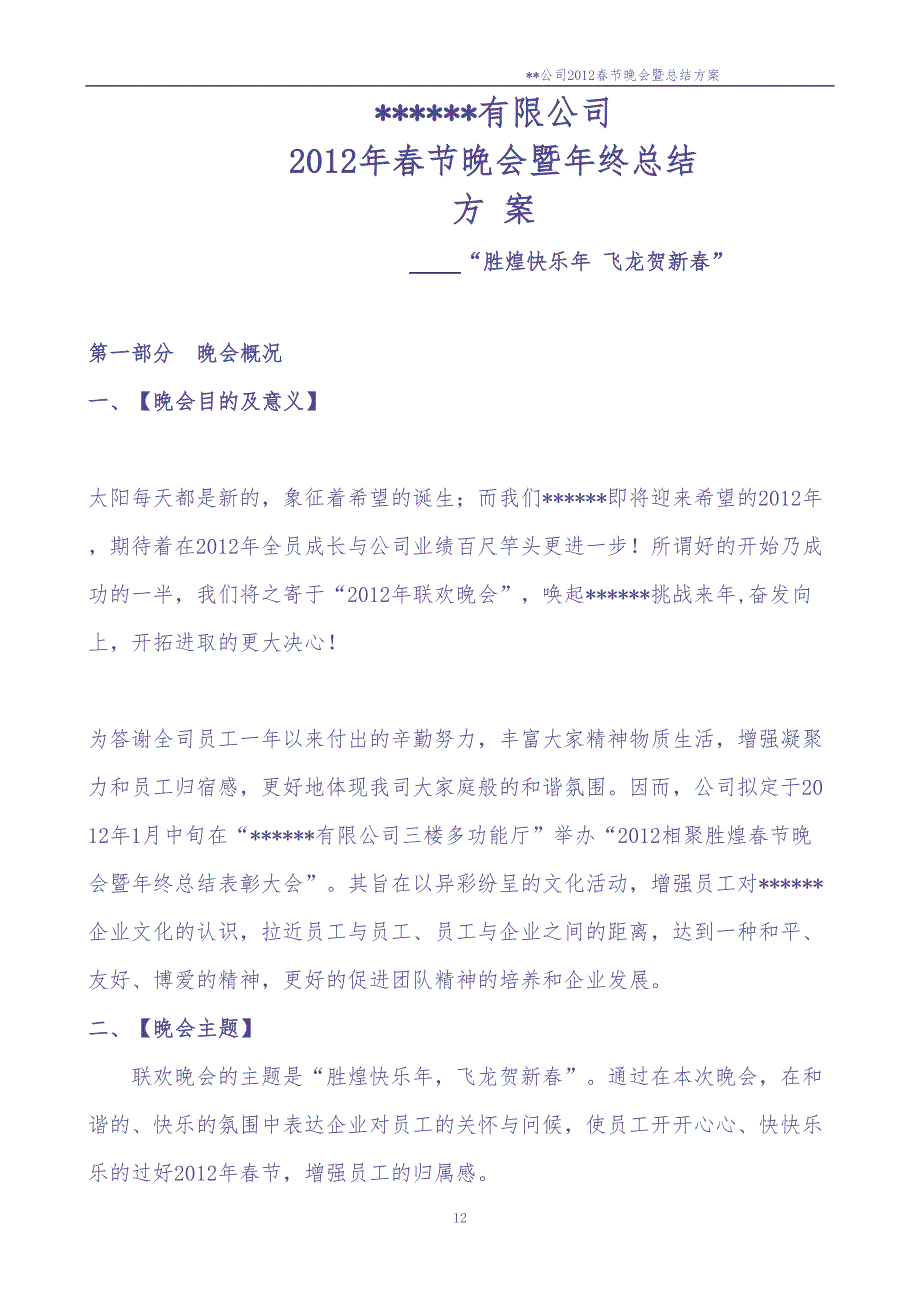 **公司2012春节晚会暨总结方案
******有限公司
2012年春节晚会暨年终总结
方 案
____“胜煌快乐年 飞龙贺新春”
第一部分  晚会概况
一、【晚会目的及意义】
太阳每天都是新的，象征着希望的诞生；而我们******即将迎来希望的2012年
，期待着在2012年全员成长与公司业绩百尺竿头更进一步！所谓好的开始乃成
功的一半，我们将之寄于“2012年联欢晚会”，唤起******挑战来年,奋发向
上，开拓进取的更大决心！
为答谢全司员工一年以来付出的辛勤努力，丰富大家精神物质生活，增强凝聚
力和员工归宿感，更好地体现我司大家庭般的和谐氛围。因而，公司拟定于20
12年1月中旬在“******有限公司三楼多功能厅”举办“2012相聚胜煌春节晚
会暨年终总结表彰大会”。其旨在以异彩纷呈的文化活动，增强员工对******
企业文化的认识，拉近员工与员工、员工与企业之间的距离，达到一种和平、
友好、博爱的精神，更好的促进团队精神的培养和企业发展。
二、【晚会主题】
联欢晚会的主题是“胜煌快乐年，飞龙贺新春”。通过在本次晚会，在和
谐的、快乐的氛围中表达企业对员工的关怀与问候，使员工开开心心、快快乐
乐的过好2012年春节，增强员工的归属感。
12